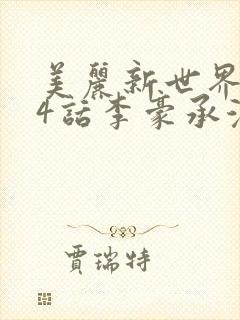 美麗新世界
4話李豪承
賈瑞特